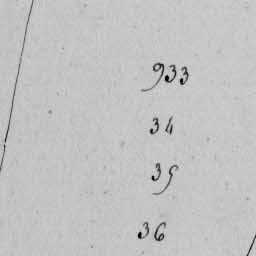 933
34
35
36